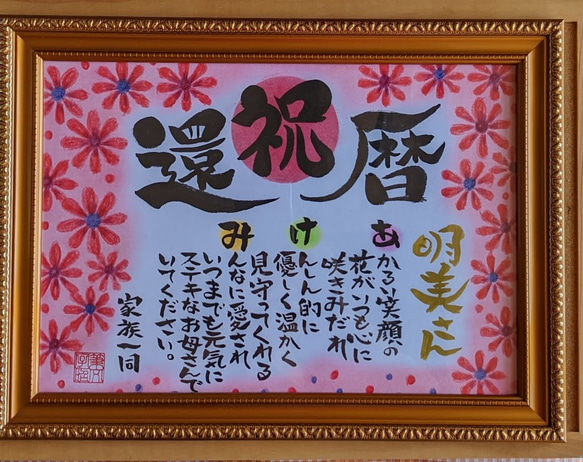 祝
還暦
明美さん
あかるい笑顔の
花がいつも心に
咲きみだれ
けんしん的に
優しく温かく
見守ってくれる
みんなに愛され
いつまでも元気に
ステキなお母さんで
いてください。
家族一同